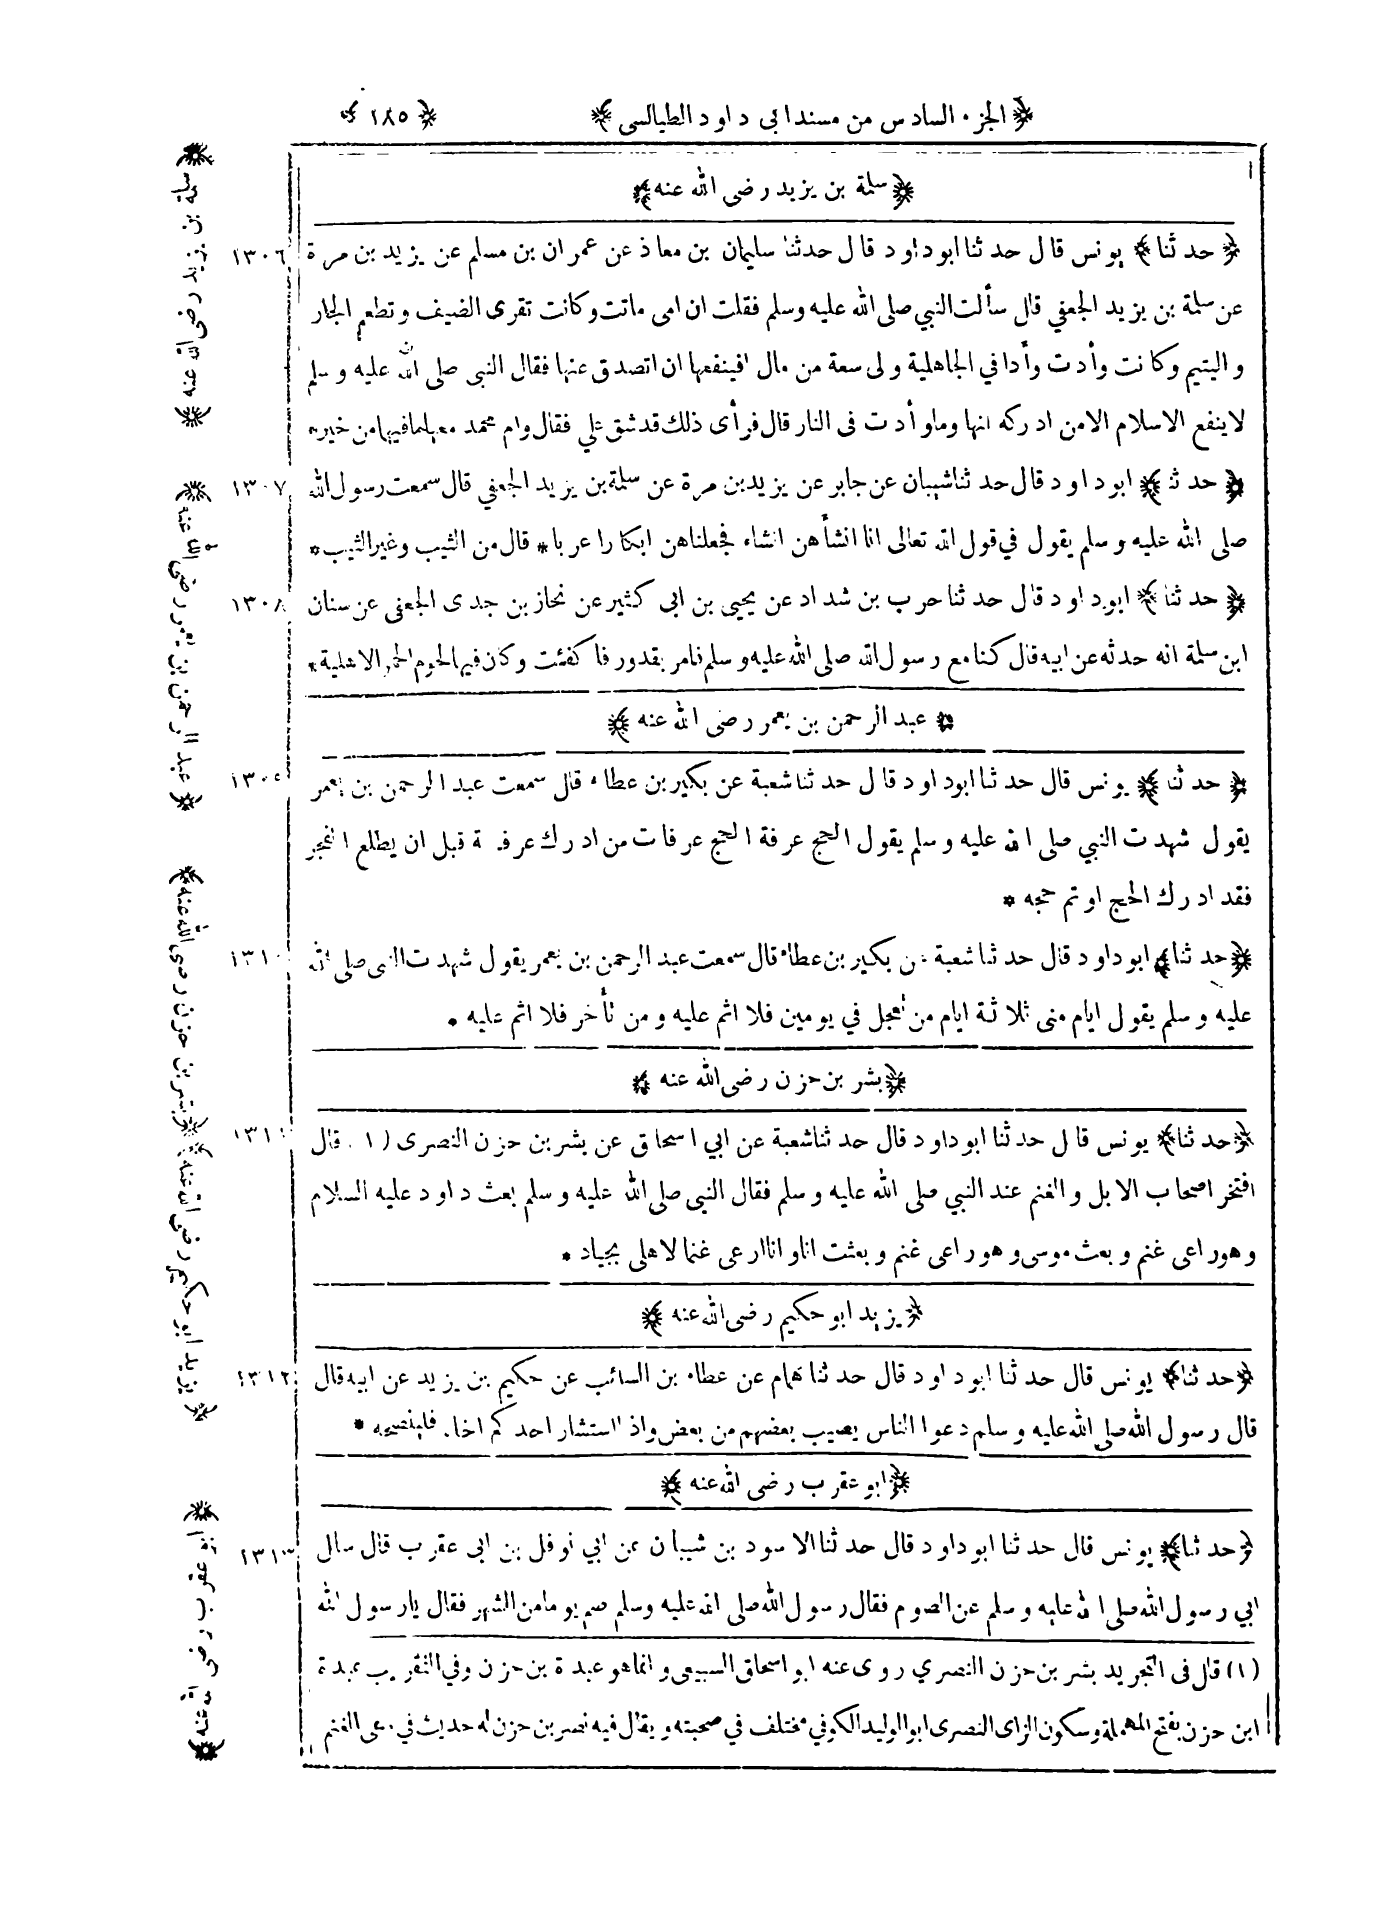 ﴿ الجزء السادس من مسند ابى داود الطيالسى ﴾ ﴿ ١٨٥ ﴾
﴿ سلمة بن يزيد رضى الله عنه ﴾
١٣٠٦ ﴿ حدثنا ﴾ يونس قال حدثنا ابو داود قال حدثنا سليمان بن معاذ عن عمران بن مسلم عن يزيد بن مرة
عن سلمة بن يزيد الجعفي قال سألت النبي صلى الله عليه وسلم فقلت ان امى ماتت وكانت تقرى الضيف وتطعم الجار
و اليتيم وكانت وأدت وأدا في الجاهلية ولى سعة من مال افينفعها ان اتصدق عنها فقال النبى صلى الله عليه وسلم
لا ينفع الاسلام الا من ادركه انها وما وأدت فى النار قال فرأى ذلك قد شق علي فقال وام محمد معهما ما فيهما من خير *
١٣٠٧ ﴿ حدثنا ﴾ ابو داود قال حدثنا شيبان عن جابر عن يزيد بن مرة عن سلمة بن يزيد الجعفي قال سمعت رسول الله
صلى الله عليه وسلم يقول في قول الله تعالى انا انشأهن انشاء فجعلناهن ابكارا عربا * قال من الثيب وغير الثيب *
١٣٠٨ ﴿ حدثنا ﴾ ابو داود قال حدثنا حرب بن شداد عن يحيى بن ابى كثير عن نحاز بن جدى الجعفى عن سنان
ابن سلمة انه حدثه عن ابيه قال كنا مع رسول الله صلى الله عليه وسلم فامر بقدور فاكفئت وكان فيها لحوم الحمر الاهلية *
﴿ عبد الرحمن بن يعمر رضى الله عنه ﴾
١٣٠٩ ﴿ حدثنا ﴾ يونس قال حدثنا ابو داود قال حدثنا شعبة عن بكير بن عطاء قال سمعت عبد الرحمن بن يعمر
يقول شهدت النبي صلى الله عليه وسلم يقول الحج عرفة الحج عرفات من ادرك عرفة قبل ان يطلع الفجر
فقد ادرك الحج او تم حجه *
١٣١٠ ﴿ حدثنا ﴾ ابو داود قال حدثنا شعبة عن بكير بن عطاء قال سمعت عبد الرحمن بن يعمر يقول شهدت النبى صلى الله
عليه وسلم يقول ايام منى ثلاثة ايام من تعجل في يومين فلا اثم عليه ومن تأخر فلا اثم عليه *
﴿ بشر بن حزن رضى الله عنه ﴾
١٣١١ ﴿ حدثنا ﴾ يونس قال حدثنا ابو داود قال حدثنا شعبة عن ابي اسحاق عن بشر بن حزن النصرى (١) قال
افتخر اصحاب الابل والغنم عند النبي صلى الله عليه وسلم فقال النبى صلى الله عليه وسلم بعث داود عليه السلام
وهو راعى غنم وبعث موسى وهو راعى غنم وبعثت انا وانا ارعى غنما لاهلى بجياد *
﴿ يزيد ابو حكيم رضى الله عنه ﴾
١٣١٢ ﴿ حدثنا ﴾ يونس قال حدثنا ابو داود قال حدثنا همام عن عطاء بن السائب عن حكيم بن يزيد عن ابيه قال
قال رسول الله صلى الله عليه وسلم دعوا الناس يصيب بعضهم من بعض واذ استشار احدكم اخاه فلينصحه *
﴿ ابو عقرب رضى الله عنه ﴾
١٣١٣ ﴿ حدثنا ﴾ يونس قال حدثنا ابو داود قال حدثنا الاسود بن شيبان عن ابي نوفل بن ابى عقرب قال سال
ابي رسول الله صلى الله عليه وسلم عن الصوم فقال رسول الله صلى الله عليه وسلم صم يوما من الشهر فقال يا رسول الله
(١) قال فى التجريد بشر بن حزن النصري روى عنه ابو اسحاق السبيعى وانما هو عبدة بن حزن وفي التقريب عبدة
ابن حزن بفتح المهملة وسكون الزاى النصرى ابو الوليد الكوفي مختلف في صحبته ويقال فيه نصر بن حزن له حديث في رعى الغنم
﴿ سلمة بن يزيد رضى الله عنه ﴾
﴿ عبد الرحمن بن يعمر رضى الله عنه ﴾
﴿ بشر بن حزن رضى الله عنه ﴾
﴿ يزيد ابو حكيم رضى الله عنه ﴾
﴿ ابو عقرب رضى الله عنه ﴾